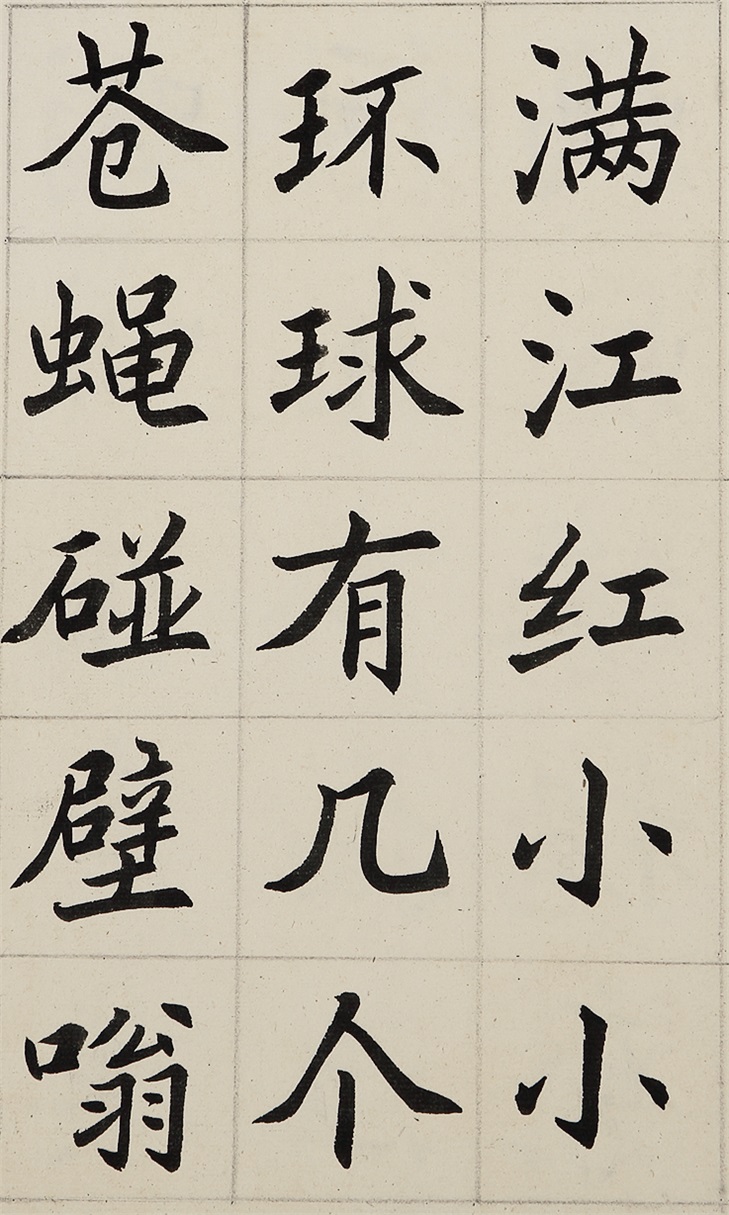 满江红小小
环球有几个
苍蝇碰壁嗡